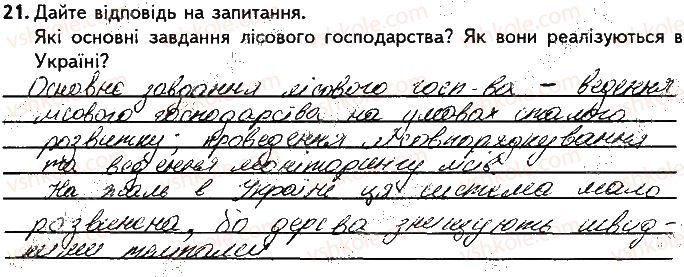 21. Дайте відповідь на запитання.
Які основні завдання лісового господарства? Як вони реалізуються в
Україні?
Основнє завдання лісового госп-ва – ведення
лісового господарства на умовах сталого
розвитку; проведення лісовпорядкування
та ведення моніторингу лісів
На жаль в Україні ця система мало
розвинена, бо дерева знищують швид-
кими темпами